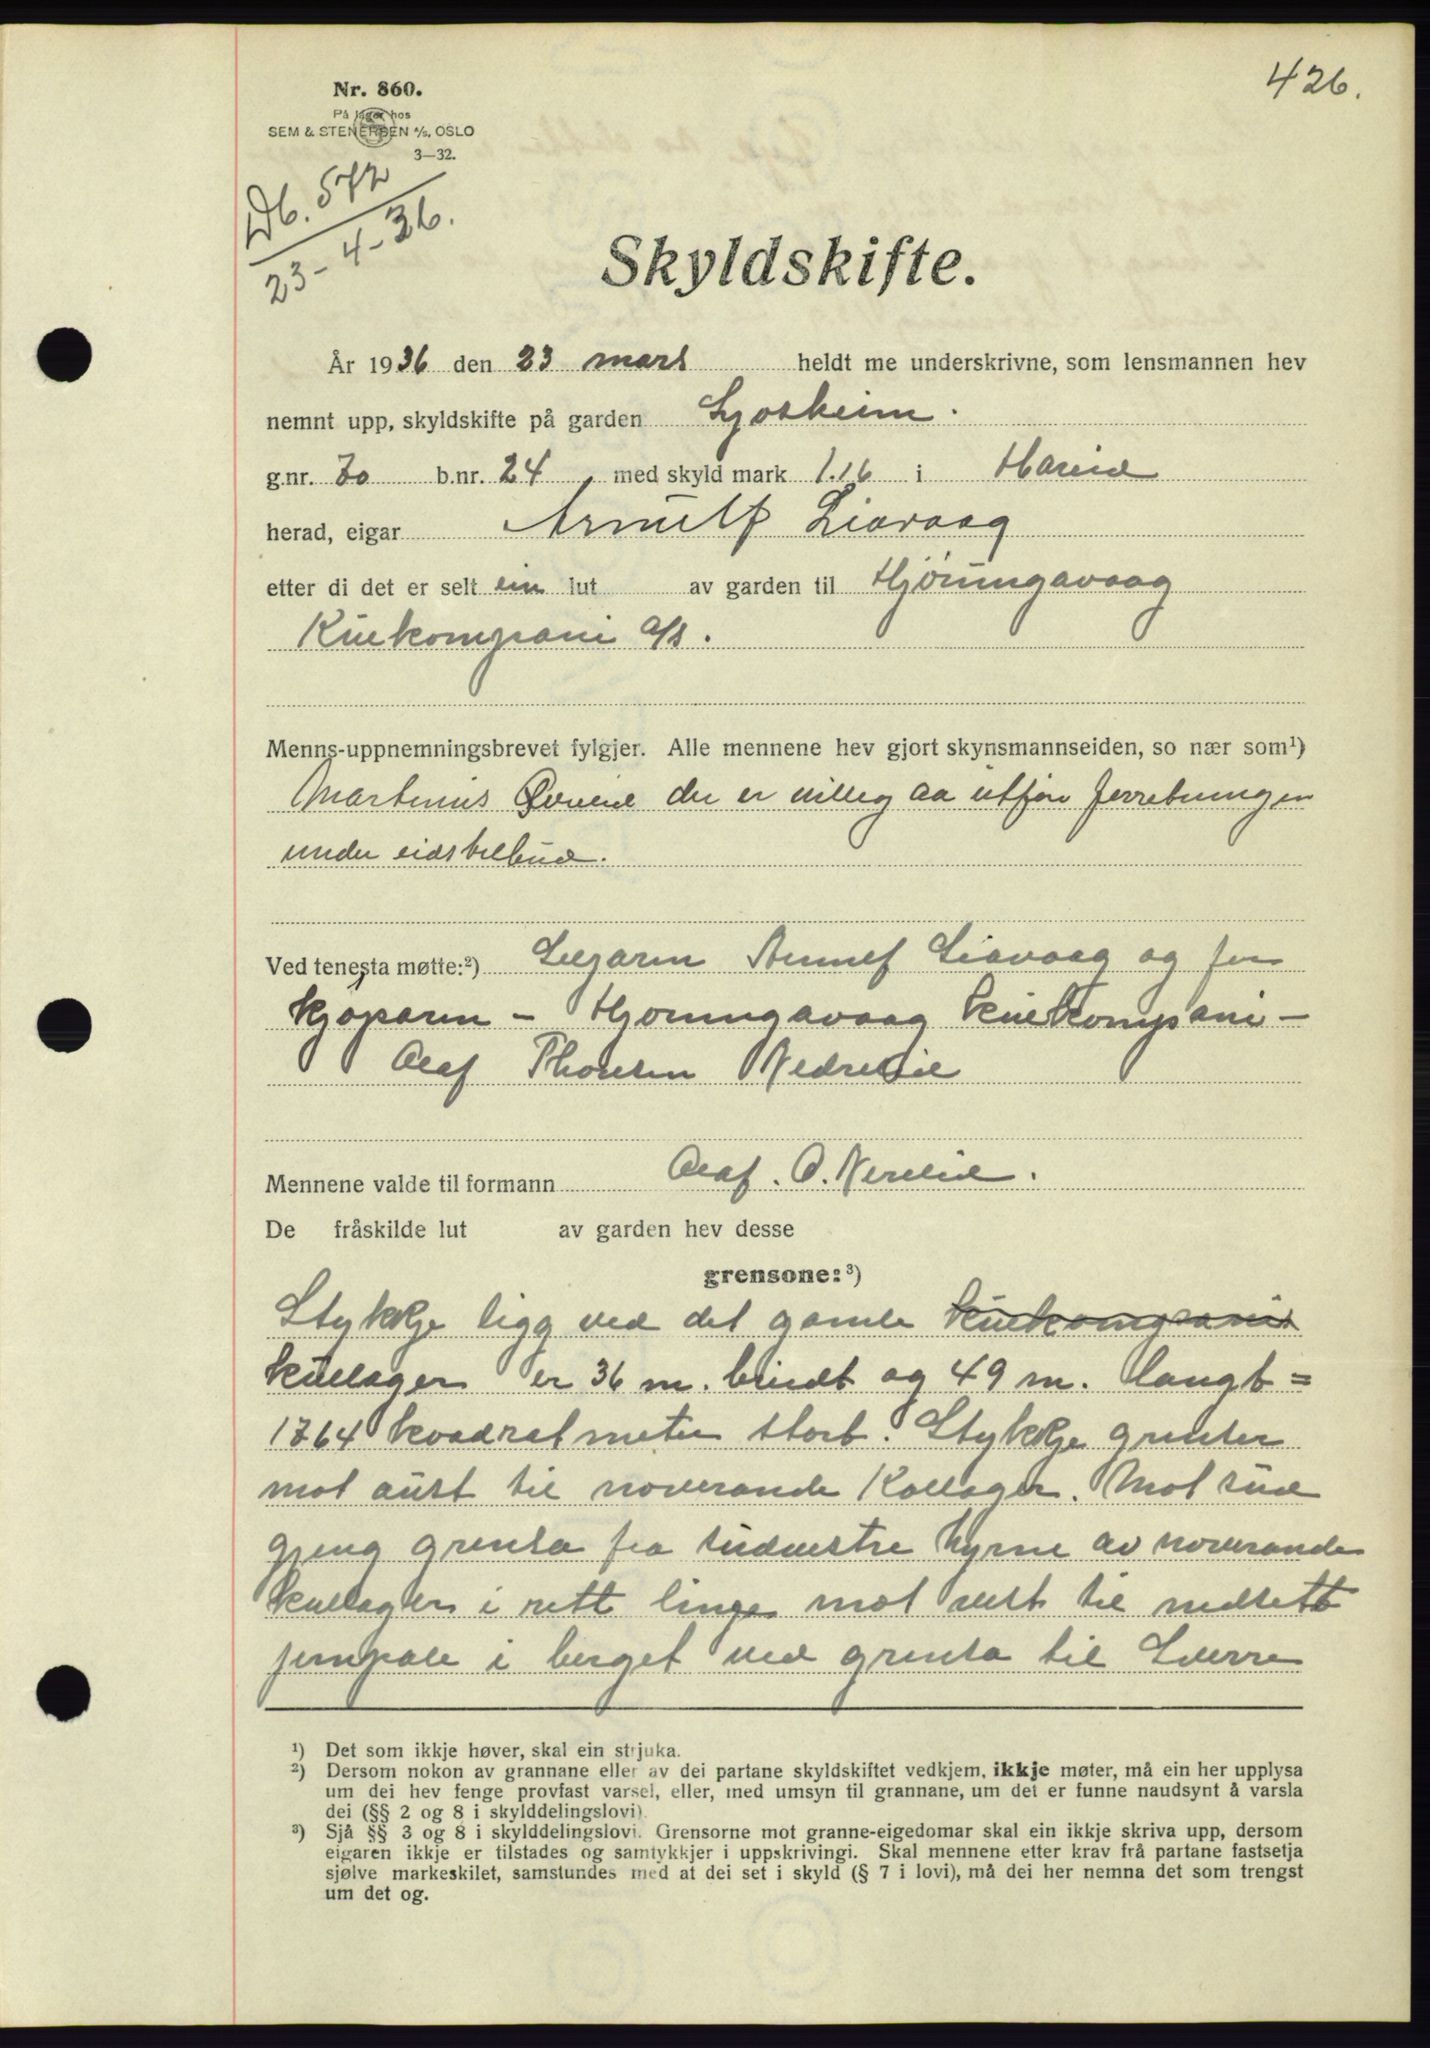 426.
Nr. 860.
På lager hos
SEM & STENERSEN A/S, OSLO
3—32.
Db. 572
23-4-36.
Skyldskifte.
År 1936 den 23 mars heldt me underskrivne, som lensmannen hev
nemnt upp, skyldskifte på garden Ljosheim.
g.nr. 70 b.nr. 24 med skyld mark 1.16 i Hareid
herad, eigar Arnulf Liavaag
etter di det er selt ein lut av garden til Hjørungavaag
Kulkompani a/s.
Menns-uppnemningsbrevet fylgjer. Alle mennene hev gjort skynsmannseiden, so nær som¹)
Martinus Øvrelid der er villig aa utføre forretningen
under eidstilbud.
Ved tenesta møtte:²) Seljaren Arnulf Liavaag og for
kjøparen - Hjorungavaag kulkompani -
Olaf Thorsen Nedrelid
Mennene valde til formann Olaf. O. Nerelid.
De fråskilde lut av garden hev desse
grensone:³)
Stykkje ligg ved det gamle kulkompani
kullager er 36 m. breidt og 49 m. langt =
1764 kvadratmeter stort. Stykkje grenser
mot aust til noverande Kollager. Mot sud
gjeng grensa fra sudvestre hyrne av noverande
kullager i rett linge mot vest til nedsett
jernpole i berget ved grensa til Sverre
¹) Det som ikkje høver, skal ein strjuka.
²) Dersom nokon av grannane eller av dei partane skyldskiftet vedkjem, ikkje møter, må ein her upplysa
um dei hev fenge provfast varsel, eller, med umsyn til grannane, um det er funne naudsynt å varsla
dei (§§ 2 og 8 i skylddelingslovi).
³) Sjå §§ 3 og 8 i skylddelingslovi. Grensorne mot granne-eigedomar skal ein ikkje skriva upp, dersom
eigaren ikkje er tilstades og samtykkjer i uppskrivingi. Skal mennene etter krav frå partane fastsetja
sjølve markeskilet, samstundes med at dei set i skyld (§ 7 i lovi), må dei her nemna det som trengst
um det og.